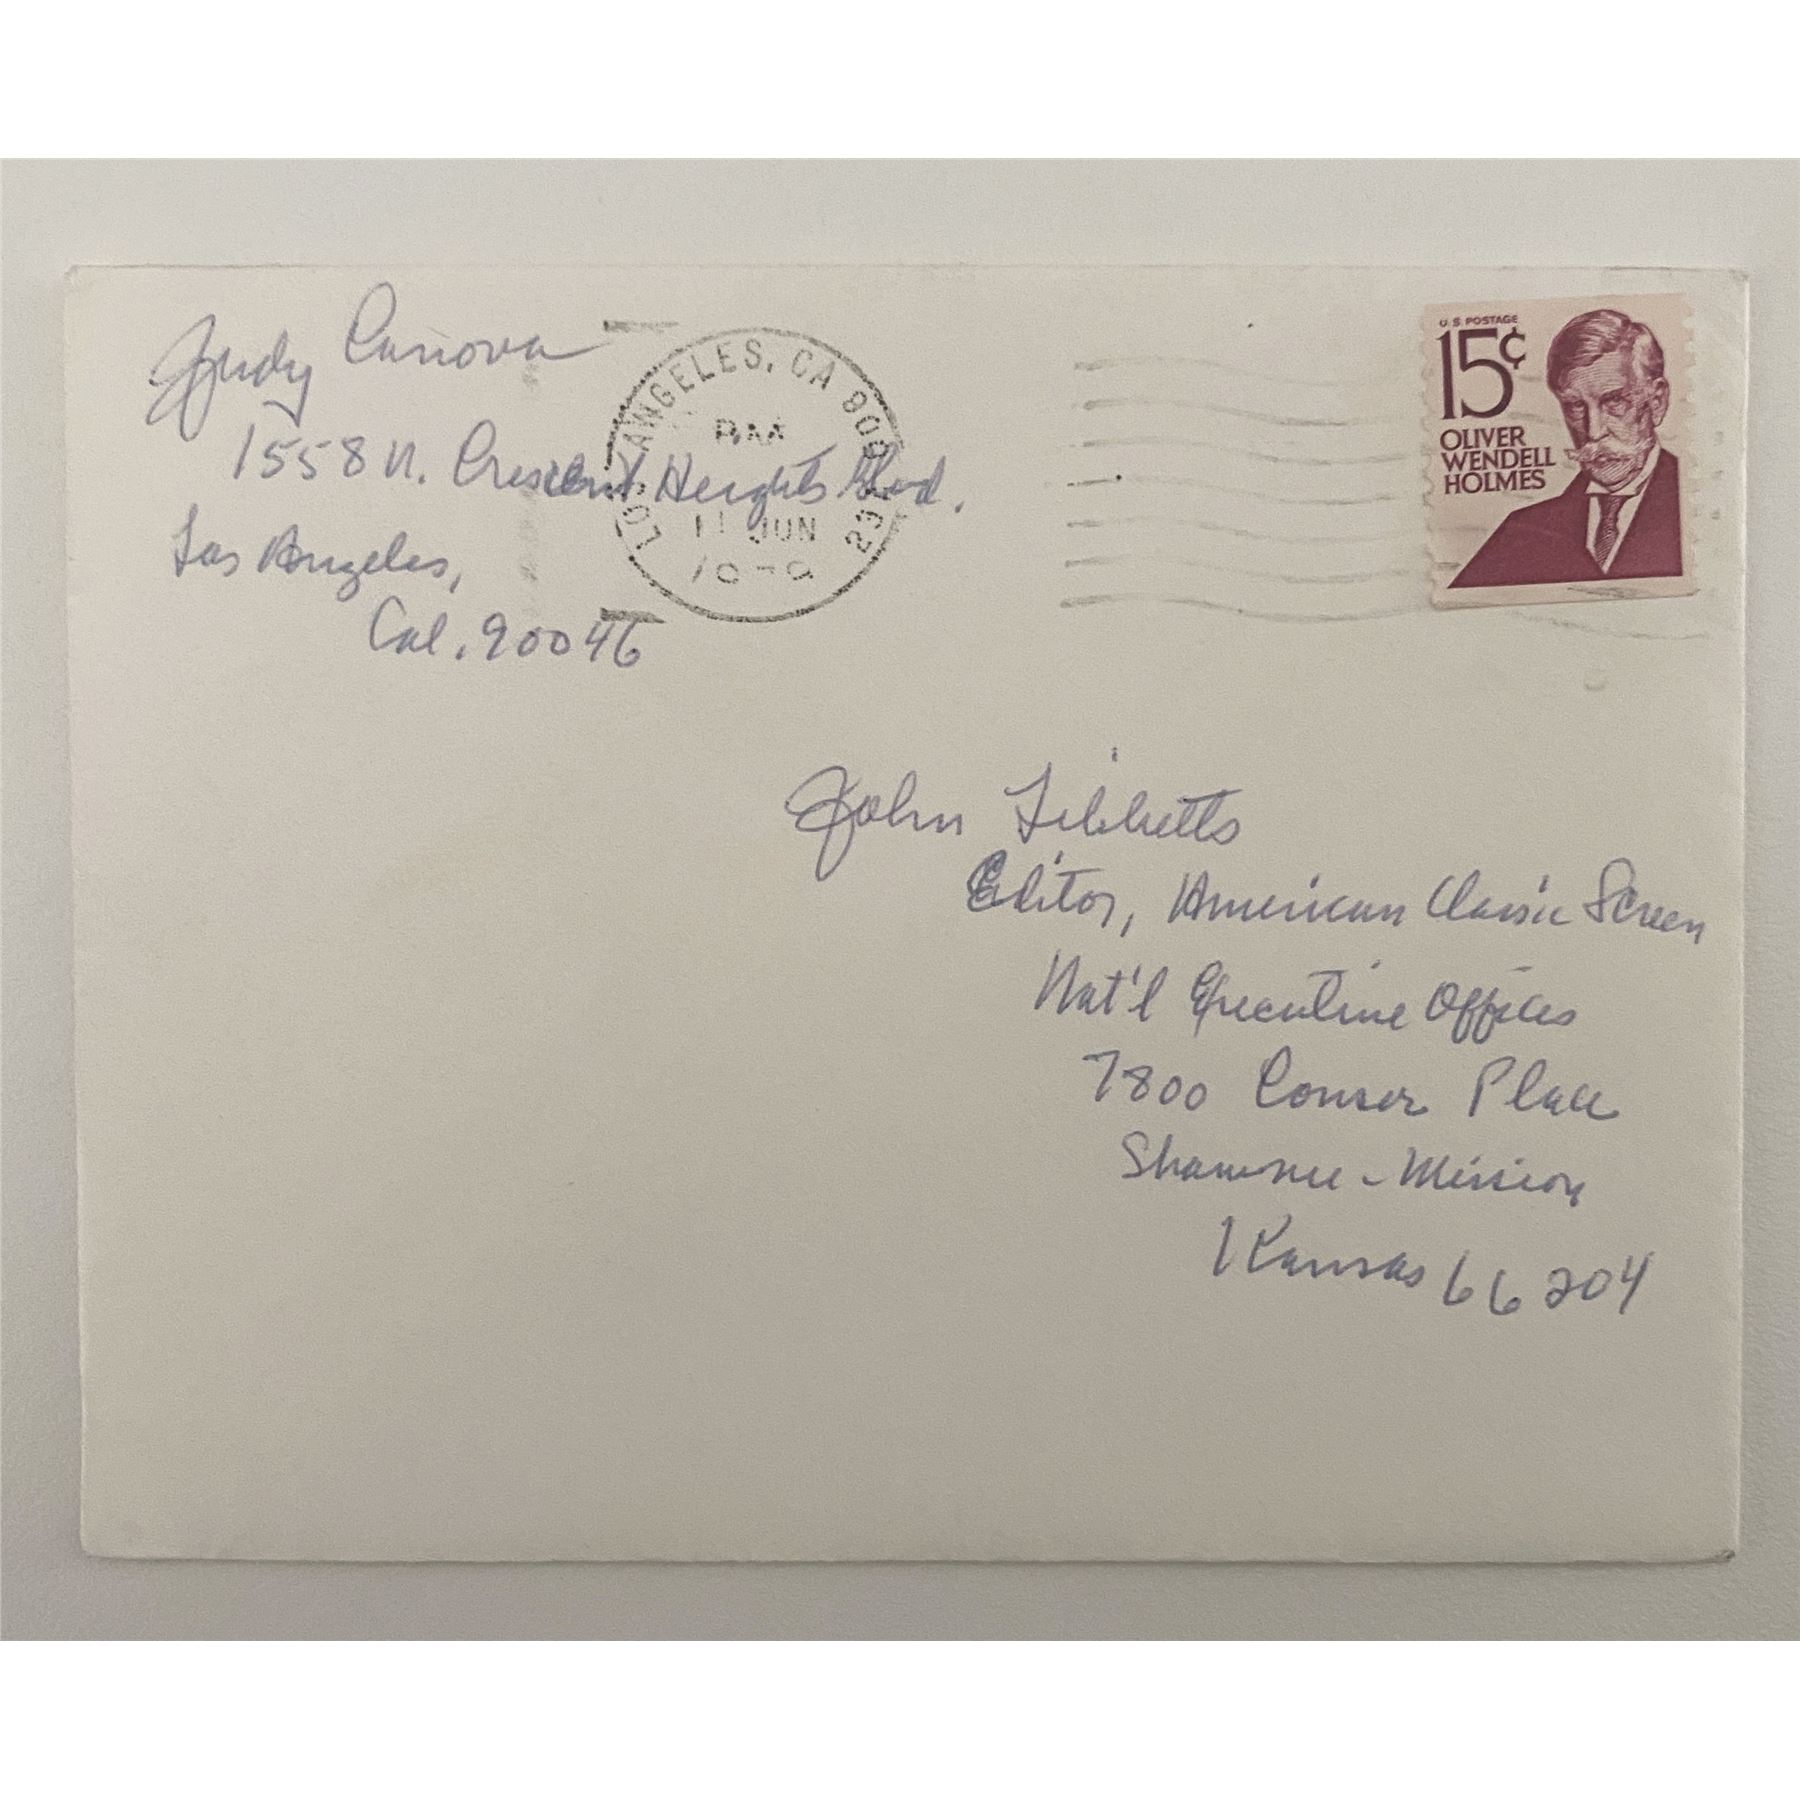 Judy Canova
1558 N. Crescent Heights Blvd.
Los Angeles,
Cal. 90046
LOS ANGELES, CA 900
PM
11 JUN
U.S. POSTAGE
15¢
OLIVER
WENDELL
HOLMES
John Tibbetts
Editor, American Classic Screen
Nat'l Executive Offices
7800 Conser Place
Shawnee - Mission
Kansas 66204